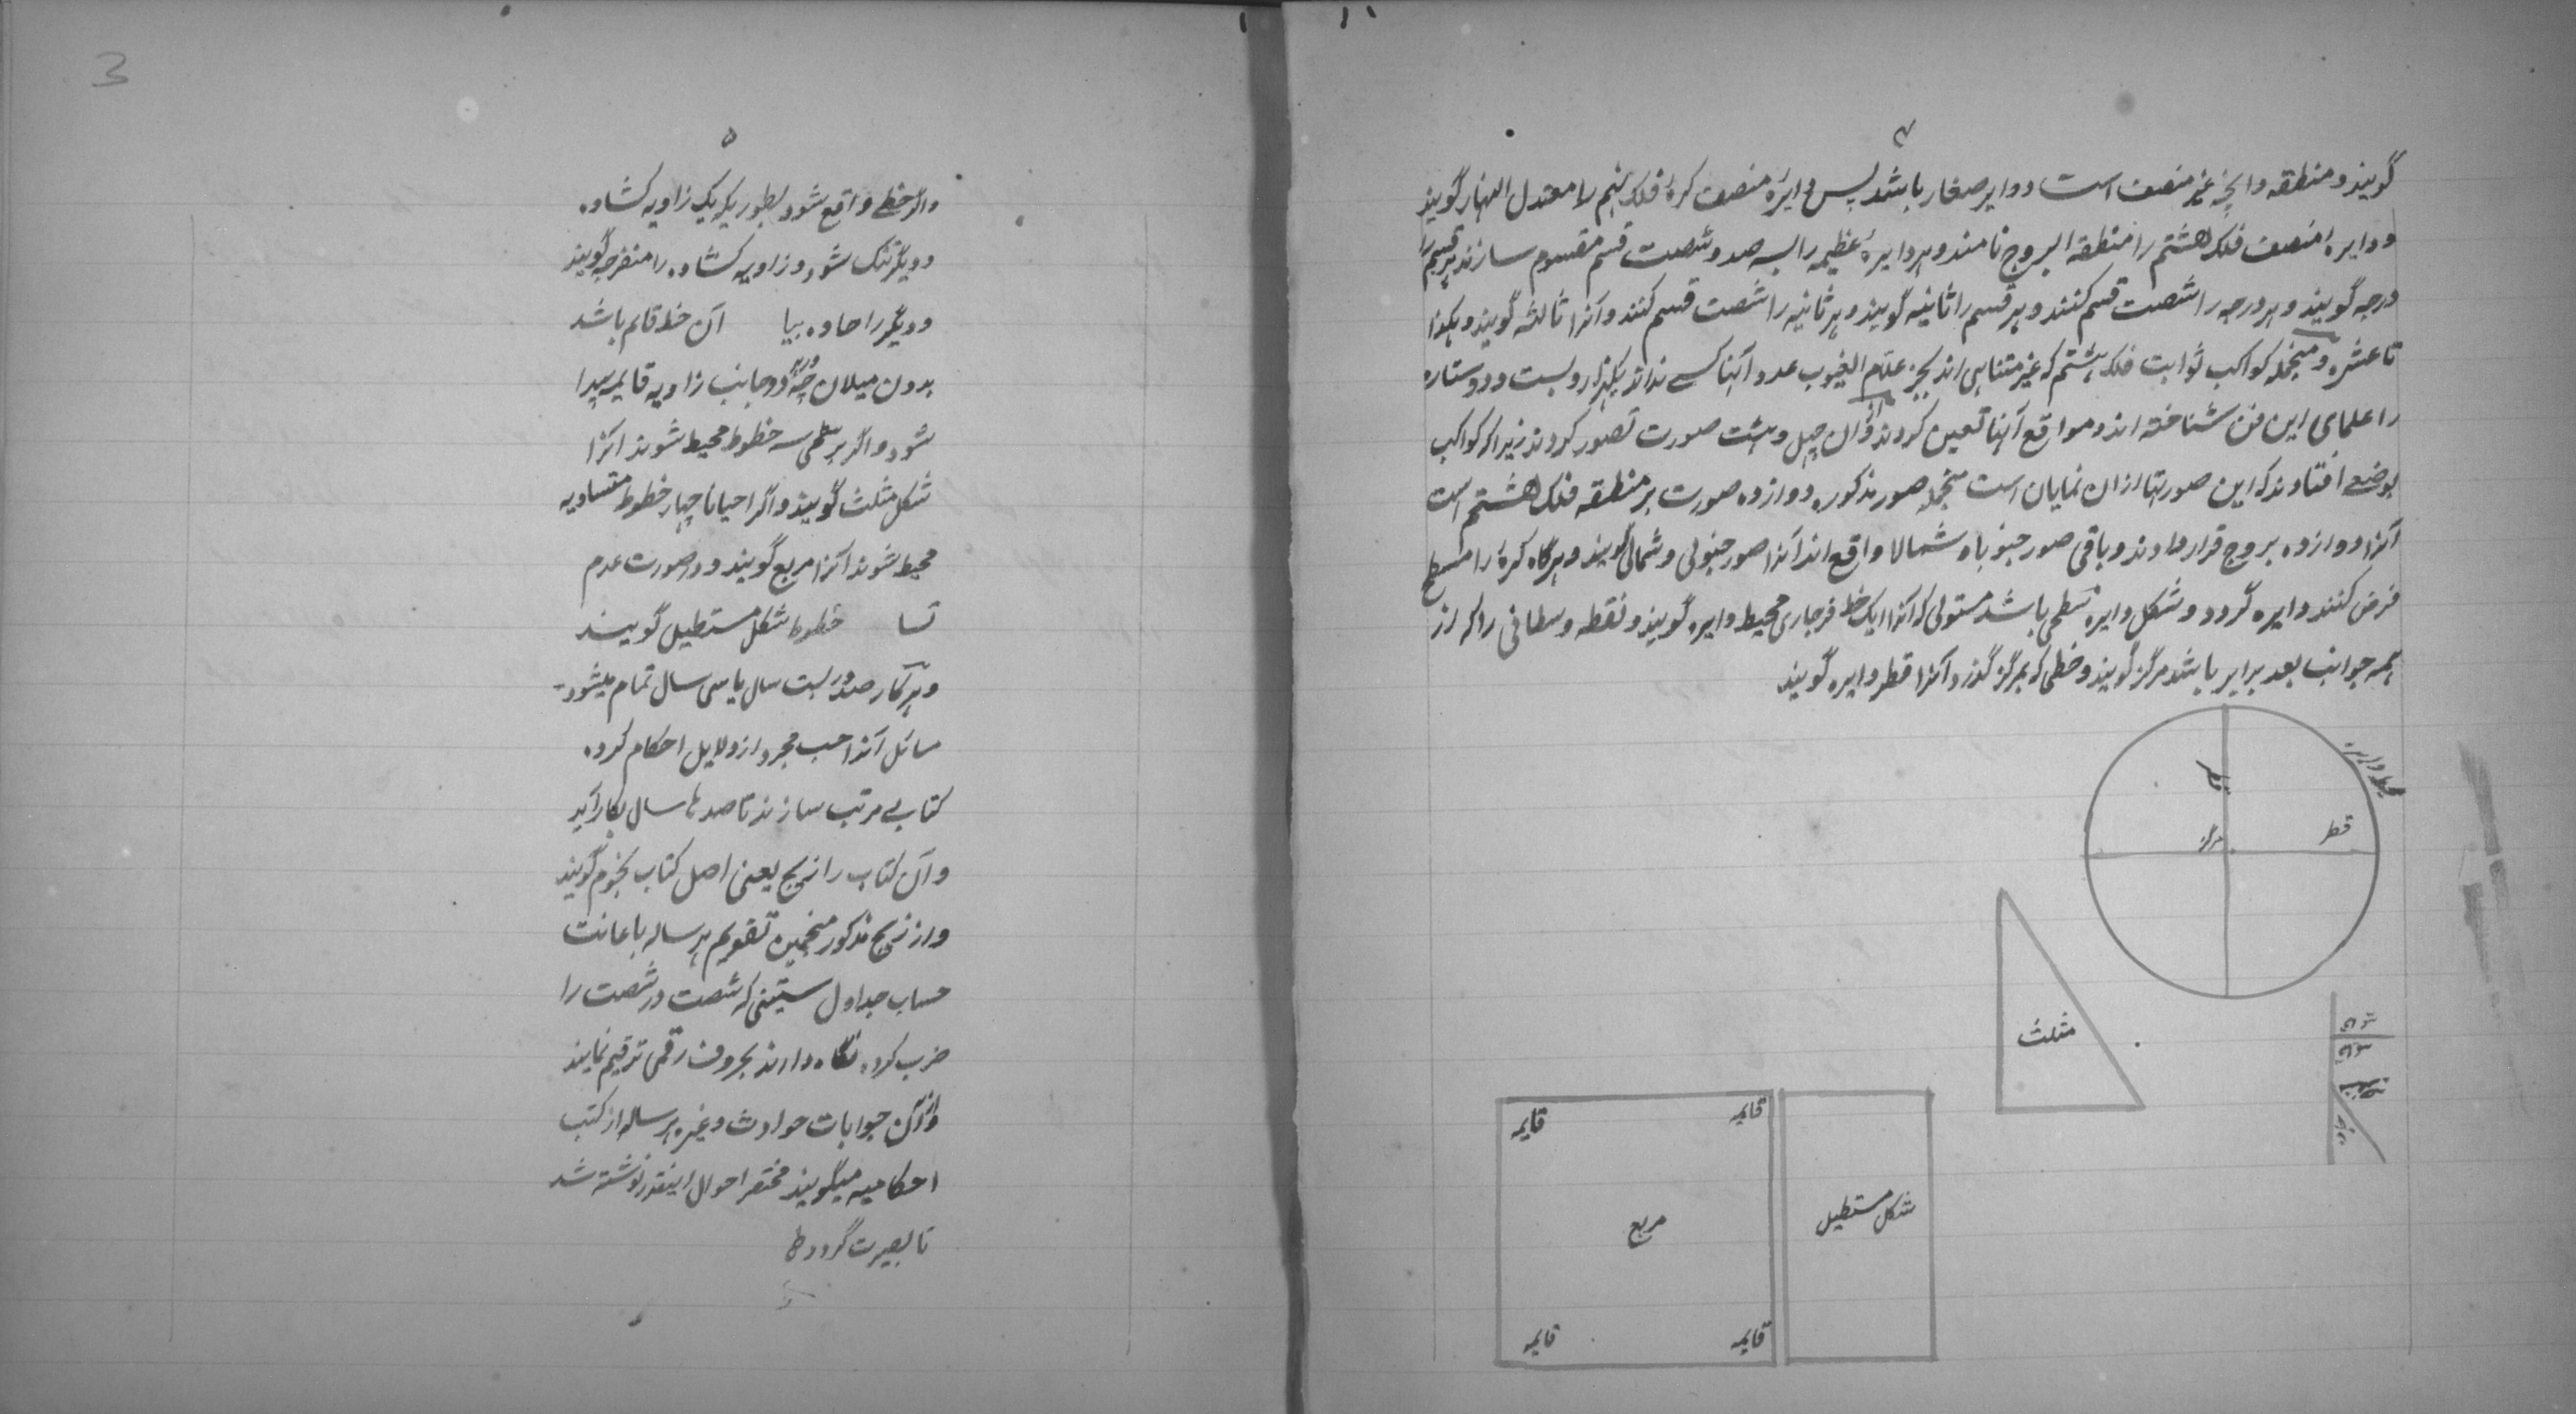 ۴
گویند و منطقه و انچه غیر منصف است دوایر صغار باشد پس دایرهٔ منصف کرهٔ فلک نهم را معدل النهار گویند
و دایرهٔ منصف فلک هشتم را منطقة البروج نامند و هر دایرهٔ عظیمه را بسه صد و شصت قسم مقسوم سازند هر قسم را
درجه گویند و هر درجه را شصت قسم کنند و هر قسم را ثانیه گویند و هر ثانیه را شصت قسم کنند و آنرا ثالثه گویند و هکذا
تا عشره و منجمله کواکب ثوابت فلک هشتم که غیر متناهی اند بجز علام الغیوب عدد آنها کسے نداند یکهزار و بست و دو ستاره
را علمای این فن شناخته اند و مواقع آنها تعین کردند و از ان چهل و هشت صورت تصور کردند زیرا که کواکب
بوضعے افتادند که این صورتها ازان نمایان است منجمله صور مذکوره دوازده صورت بر منطقه فلک هشتم است
آنرا دوازده بروج قرار دادند و باقی صور جنوباه شمالا واقع اند آنرا صور جنوبی و شمالی گویند و هرگاه کرهٔ را مسطح
فرض کنند دایره گردد و شکل دایره سطحی باشد مستوی که آنرا یک خط فرجاری محیط دایره گویند و نقطه وسطانی را که از
همه جوانب بعد برابر باشد مرکز گویند و خطی که بمرکز گذرد آنرا قطر دایره گویند
محیط دایره
قطر
قطر
مرکز
مثلث
قایمه
قایمه
مربع
شکل مستطیل
قایمه
قایمه
۵
و اگر خطے واقع شود بطوریکه یک زاویه کشاده
و دیگر تنک شود و زاویه کشاده را منفرجه گویند
و دیگر را حاده بیا آن خط قایم باشد
بدون میلان چه هر دو جانب زاویه قایمه پیدا
شود و اگر بر سطحی سه خطوط محیط شوند آنرا
شکل مثلث گویند و اگر احیانا چهار خطوط متساویه
محیط شوند آنرا مربع گویند و در صورت عدم
تسا خطوط شکل مستطیل گویند
و هر کار صد در بست سال یا سی سال تمام میشود
مسائل آنرا حسب مجرد از دلایل احکام کرده
کتابے مرتب سازند تا صدها سال بکار آید
و آن کتاب را زیچ یعنی اصل کتاب نجوم گویند
و از زیچ مذکور منجمین تقویم هر ساله باعانت
حساب جداول ستینی که شصت در شصت را
ضرب کرده نگاه دارند بحروف رقمی ترقیم نمایند
و از آن جوابات حوادث و غیره هر ساله از کتب
احکامیه میگویند مختصر احوال اینقدر نوشته شد
تا بصیرت گردد
3